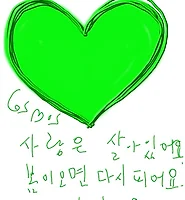 Cosmos
사랑은 살아있어요
봄이오면 다시 피어요